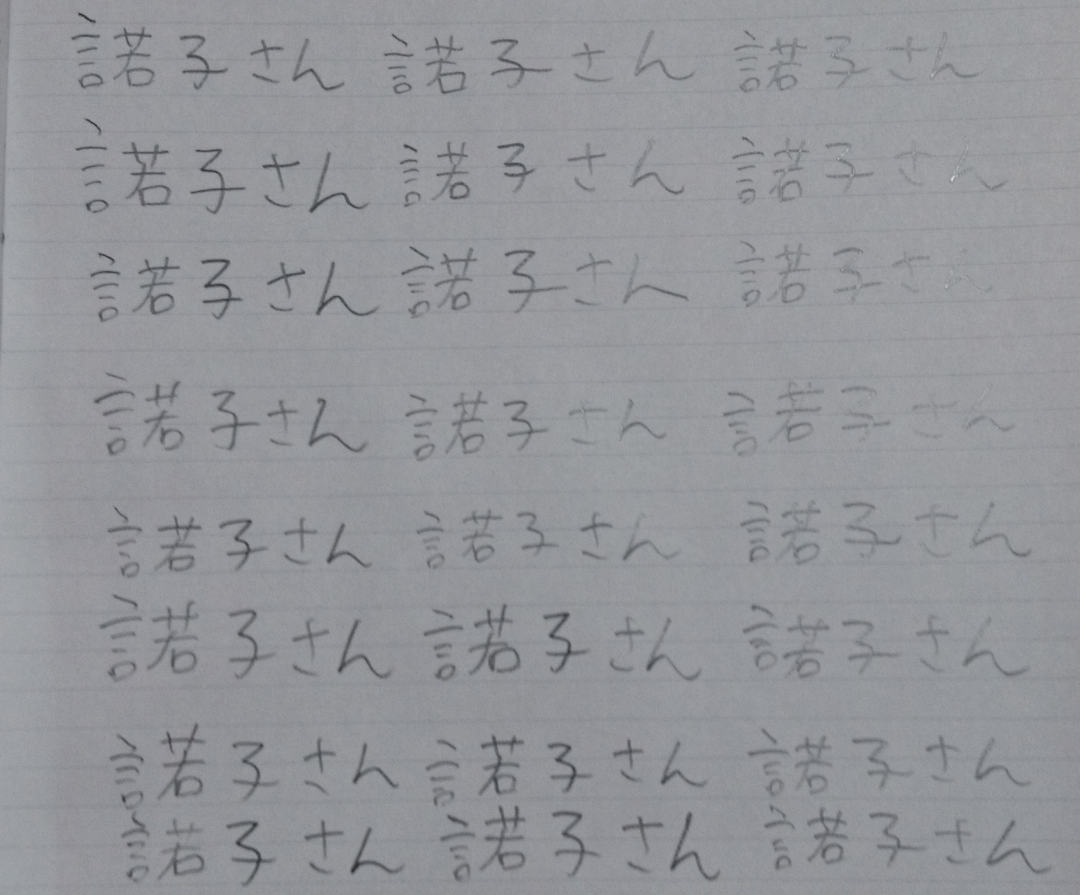 諾子さん 諾子さん 諾子さん
諾子さん 諾子さん 諾子さん
諾子さん 諾子さん 諾子さん
諾子さん 諾子さん 諾子さん
諾子さん 諾子さん 諾子さん
諾子さん 諾子さん 諾子さん
諾子さん 諾子さん 諾子さん
諾子さん 諾子さん 諾子さん